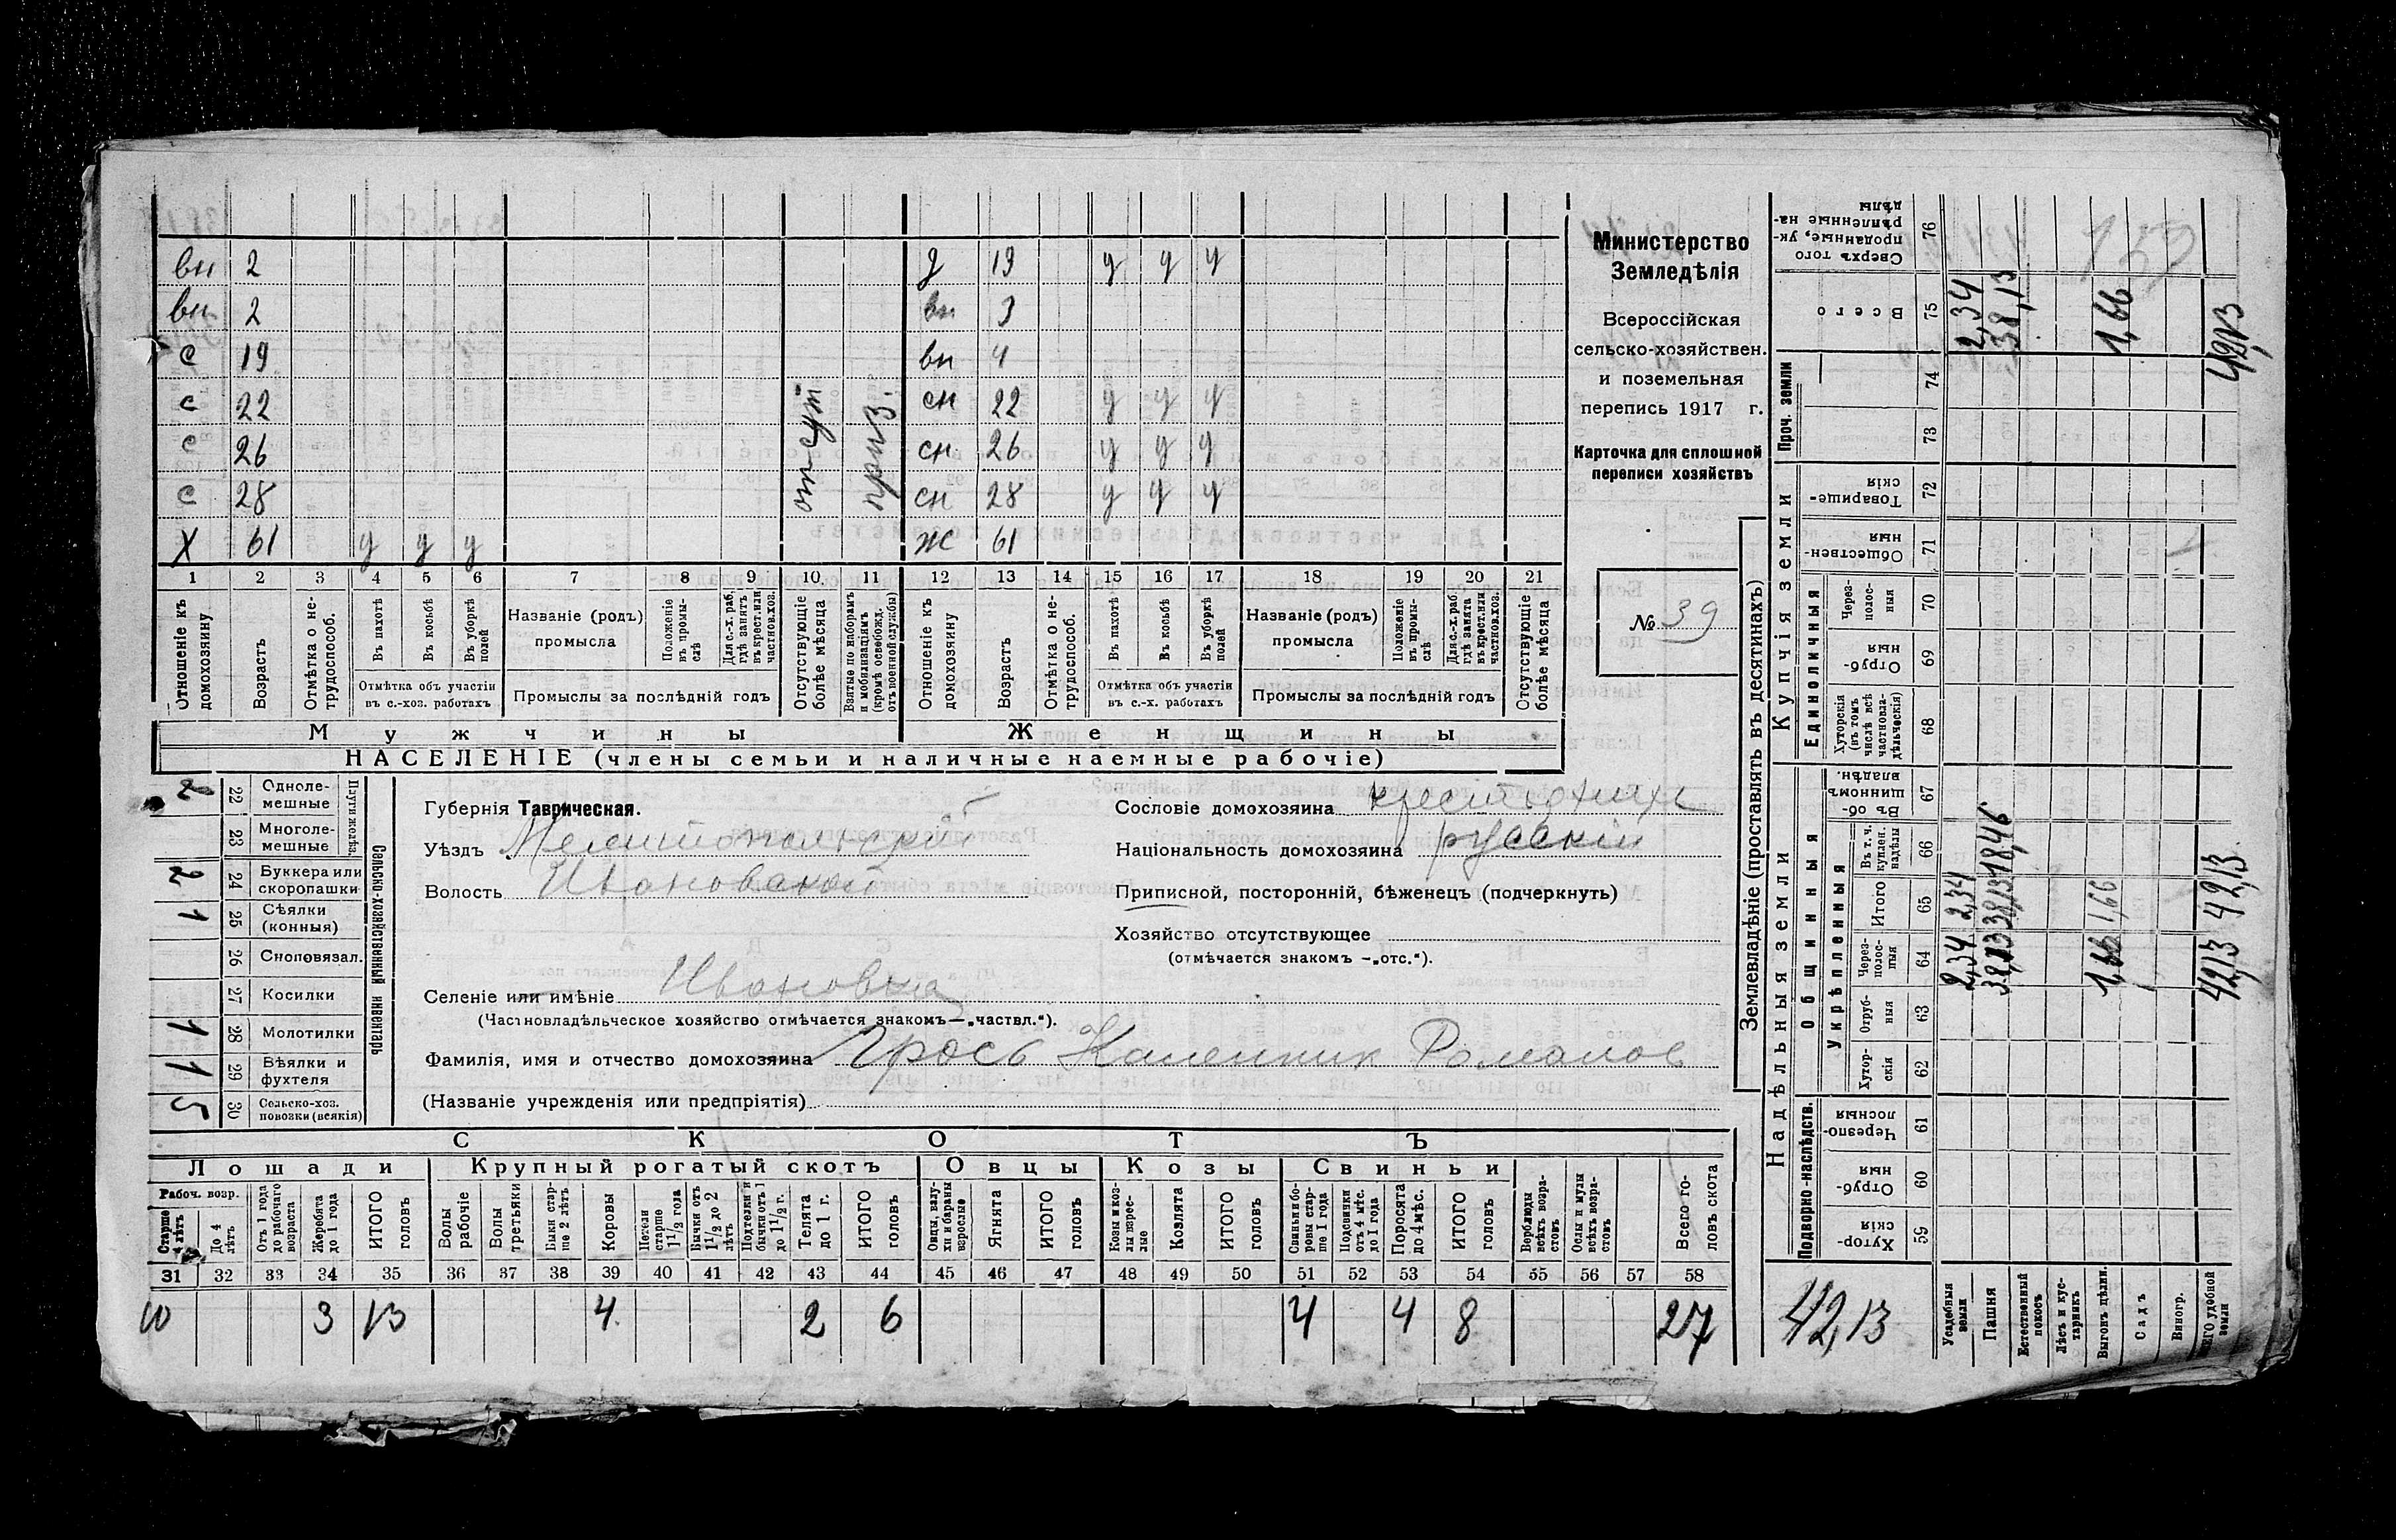 вн 2 д 19 у у у
вн 2 вн 3
с 19 вн 4
с 22 сн 22 у у у
с 26 сн 26 у у у
с 28 сн 28 у у у
отсут приз.
Х 61 у у у ж 61
1 2 3 4 5 6 7 8 9 10 11 12 13 14 15 16 17 18 19 20 21
Отношеніе къ домохозяину
Возрастъ
Отмѣтка о не-трудоспособ.
Въ пахотѣ
Въ косьбѣ
Въ уборкѣ полей
Отмѣтка объ участіи въ с.-хоз. работахъ
Названіе (родъ) промысла
Положеніе въ промы-слѣ
Для с.-х. раб. гдѣ занятъ въ крест. или частнов. хоз.
Промыслы за послѣдній годъ
Отсутствующіе болѣе мѣсяца
Взятые по наборамъ и мобилизаціямъ (кромѣ освобожд. отъ военной службы)
Отношеніе къ домохозяину
Возрастъ
Отмѣтка о не-трудоспособ.
Въ пахотѣ
Въ косьбѣ
Въ уборкѣ полей
Отмѣтка объ участіи въ с.-х. работахъ
Названіе (родъ) промысла
Положеніе въ промы-слѣ
Для с.-х. раб. гдѣ занята въ крест. или частнов. хоз.
Промыслы за послѣдній годъ
Отсутствующіе болѣе мѣсяца
Мужчины Женщины
НАСЕЛЕНІЕ (члены семьи и наличные наемные рабочіе)
Министерство
Земледѣлія
Всероссійская
сельско-хозяйствен.
и поземельная
перепись 1917 г.
Карточка для сплошной
переписи хозяйствъ
№ 39
2 22 Однолемешные
23 Многолемешные
Плуги желѣз.
2 24 Буккера или скоропашки
1 25 Сѣялки (конныя)
26 Сноповязал.
27 Косилки
1 28 Молотилки
1 29 Вѣялки и фухтеля
5 30 Сельско-хоз. повозки (всякія)
Сельско-хозяйственный инвентарь
Губернія Таврическая.
Уѣздъ Мелитопольскій
Волость Ивановской
Селеніе или имѣніе Ивановка
(Частновладѣльческое хозяйство отмѣчается знакомъ—„частвл.“).
Фамилія, имя и отчество домохозяина Грось Каленник Романов
(Названіе учрежденія или предпріятія)
Сословіе домохозяина
Національность домохозяина русскій
Приписной, посторонній, бѣженецъ (подчеркнуть)
Хозяйство отсутствующее
(отмѣчается знакомъ —„отс.“).
СКОТЪ
Лошади Крупный рогатый скотъ Овцы Козы Свиньи
Рабоч. возр.
Старше 4 лѣтъ
До 4 лѣтъ
Отъ 1 года до рабочаго возраста
Жеребята до 1 года
ИТОГО головъ
Волы рабочіе
Волы третьяки
Быки стар-ше 2 лѣтъ
Коровы
Нетели старше 1½ года
Бычки отъ 1½ до 2 лѣтъ
Подтелки и бычки отъ 1 до 1½ г.
Телята до 1 г.
ИТОГО головъ
Овцы, валу-хи и бараны взрослые
Ягнята
ИТОГО головъ
Козы и коз-лы взрос-лые
Козлята
ИТОГО головъ
Свиньи и бо-ровы стар-ше 1 года
Подсвинки отъ 4 мѣс. до 1 года
Поросята до 4 мѣс.
ИТОГО головъ
Верблюды всѣхъ возра-стовъ
Ослы и мулы всѣхъ возра-стовъ
Всего го-ловъ скота
31 32 33 34 35 36 37 38 39 40 41 42 43 44 45 46 47 48 49 50 51 52 53 54 55 56 57 58
10 3 13 4 2 6 4 4 8 27
Землевладѣніе (проставлять въ десятинахъ)
Купчія земли
Проч. земли
Единоличныя
Надѣльныя земли
Общинныя
Укрѣпленныя
Подворно-наслѣдств.
Сверхъ того проданные, ук-рѣпленные на-дѣлы 76
Всего 75 2,34 38,13 1,66 42,13
74
73
Товарище-скія 72
Обществен-ныя 71
Через-полос-ныя 70
Отруб-ныя 69
Хуторскія (въ томъ числѣ всѣ частновла-дѣльческія) 68
Въ об-щинномъ владѣн. 67
Въ т. ч. куплен. надѣлы 66 18,46
Итого 65 2,34 38,13 1,66 42,13
Через-полос-ныя 64 2,34 38,13 1,66 42,13
Отруб-ныя 63
Хутор-скія 62
Черезпо-лосныя 61
Отруб-ныя 60
Хутор-скія 59
42,13
Усадебныя земли
Пашня
Естественный покосъ
Лѣсъ и кус-тарникъ
Выгонъ цѣлин.
Садъ
Виногр.
удобной земли